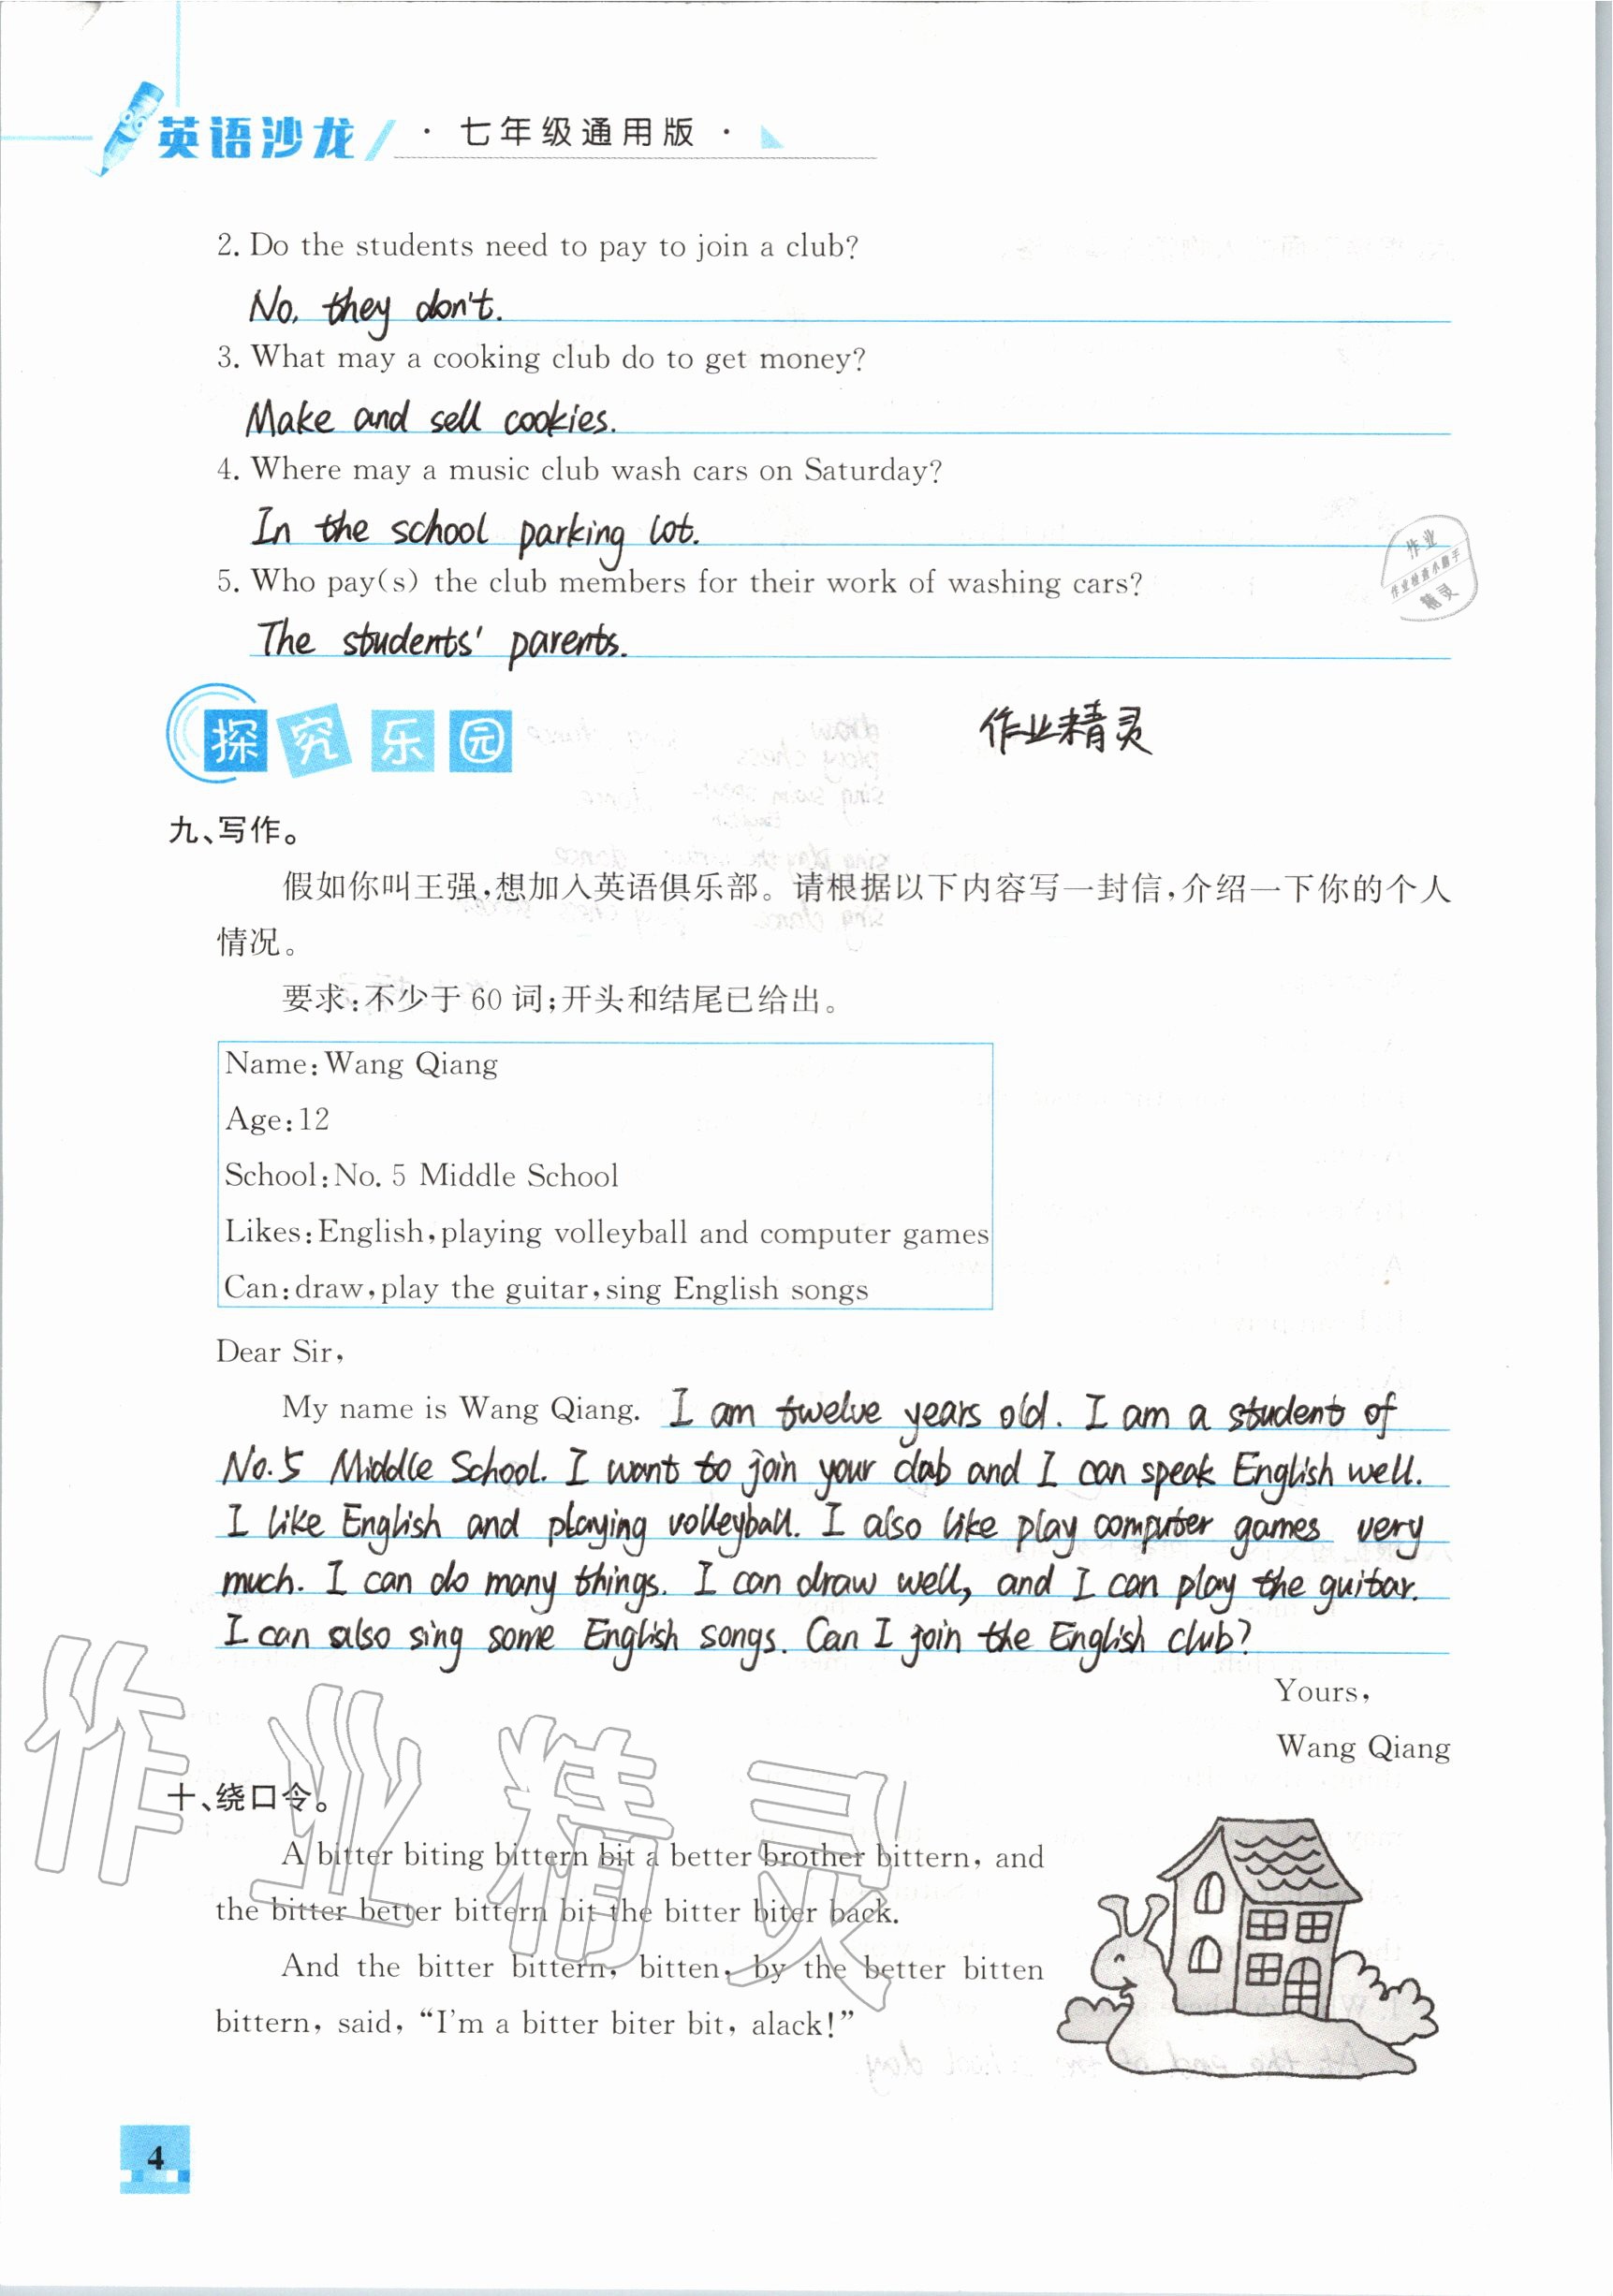 英语沙龙 · 七年级通用版 ·
2. Do the students need to pay to join a club?
No, they don't.
3. What may a cooking club do to get money?
Make and sell cookies.
4. Where may a music club wash cars on Saturday?
In the school parking lot.
作业
作业检查小助手
精灵
5. Who pay(s) the club members for their work of washing cars?
The students' parents.
探究乐园
作业精灵
九、写作。
假如你叫王强,想加入英语俱乐部。请根据以下内容写一封信,介绍一下你的个人
情况。
要求:不少于 60 词;开头和结尾已给出。
Name: Wang Qiang
Age: 12
School: No. 5 Middle School
Likes: English, playing volleyball and computer games
Can: draw, play the guitar, sing English songs
Dear Sir,
My name is Wang Qiang. I am twelve years old. I am a student of
No.5 Middle School. I want to join your clab and I can speak English well.
I like English and playing volleyball. I also like play computer games very
much. I can do many things. I can draw well, and I can play the guitar.
I can also sing some English songs. Can I join the English club?
Yours,
Wang Qiang
作业精灵
十、绕口令。
A bitter biting bittern bit a better brother bittern, and
the bitter better bittern bit the bitter biter back.
And the bitter bittern, bitten, by the better bitten
bittern, said, “I'm a bitter biter bit, alack!”
4